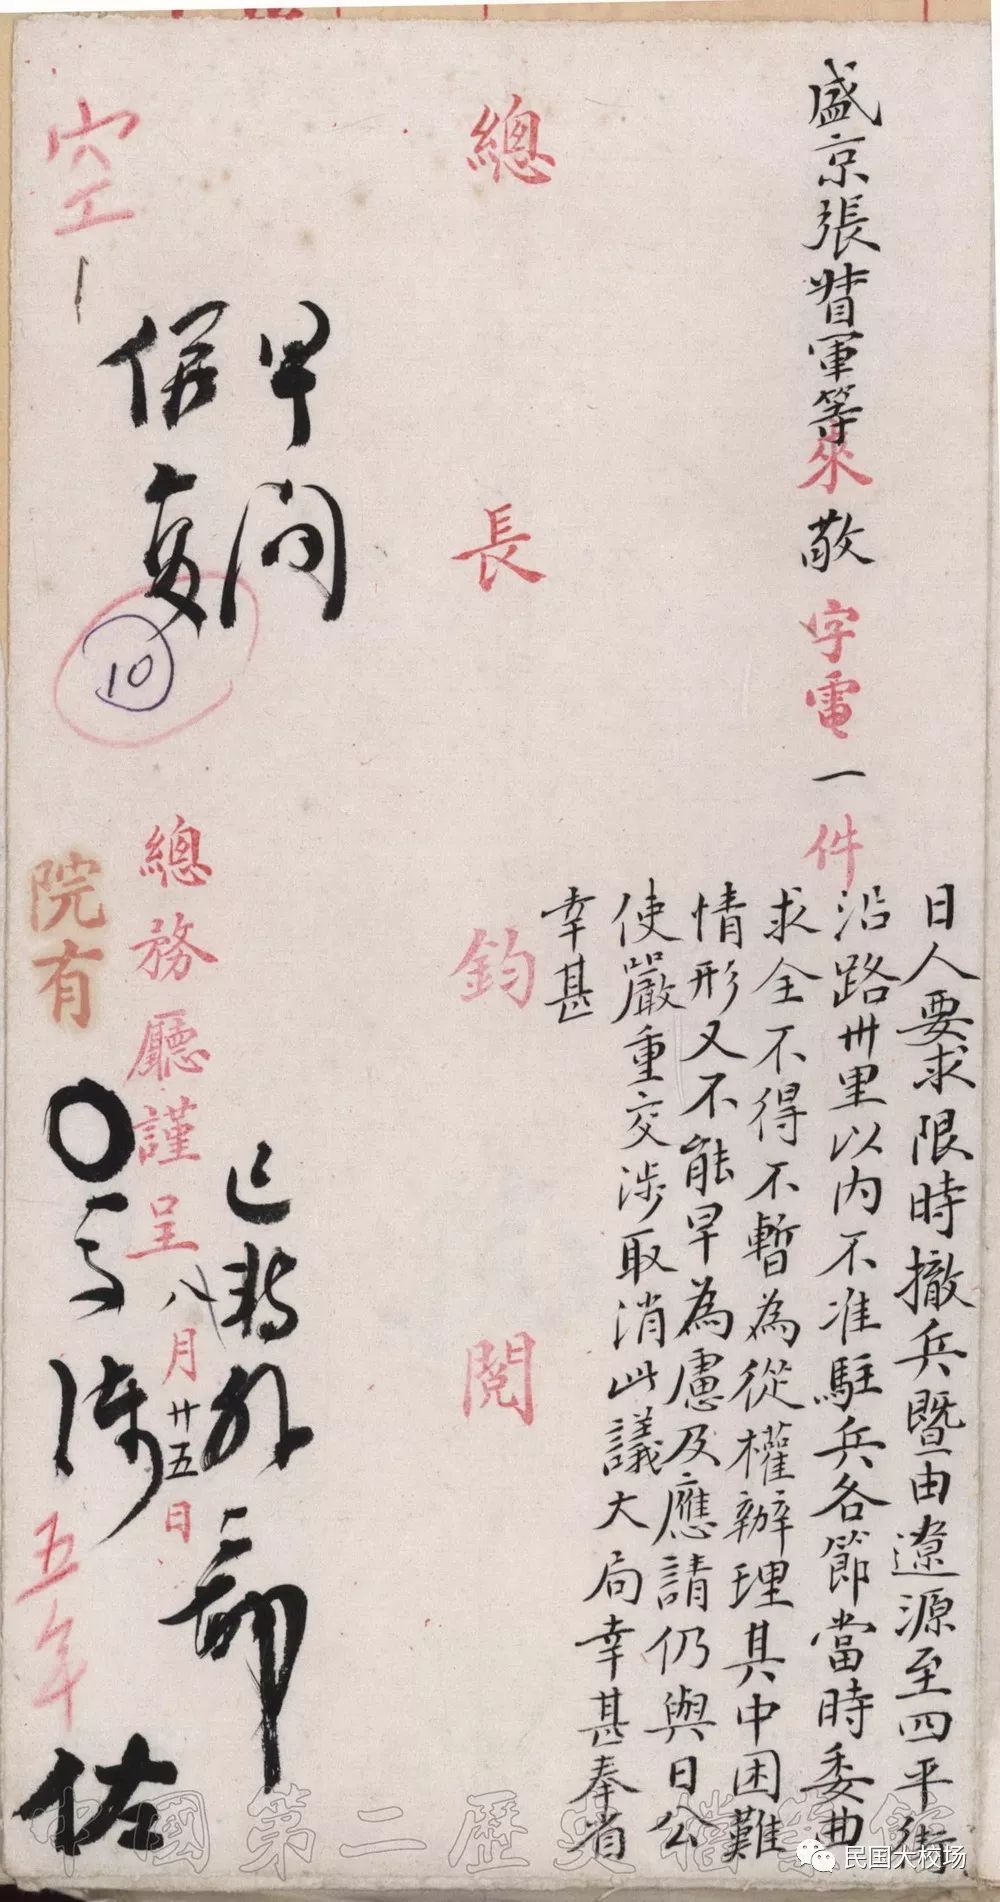 盛京張督軍等來敬字電一件
日人要求限時撤兵暨由遼源至四平街
沿路卅里以內不准駐兵各節當時委曲
求全不得不暫為從權辦理其中困難
情形又不能早為慮及應請仍與日公
使嚴重交涉取消此議大局幸甚奉省
幸甚
總長鈞閱
總務廳謹呈八月廿五日
五年
院有
已
外部
佐
10
中國第二歷史檔案館
民国大校场